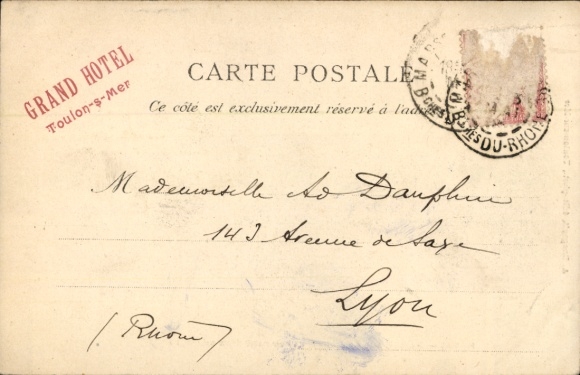 GRAND HOTEL
Toulon-s-Mer
CARTE POSTALE
Ce côté est exclusivement réservé à l'ad
Bches DU-RHONE
Mademoiselle Ad Dauphin
143 Avenue de Saxe
Lyon
(Rhône)